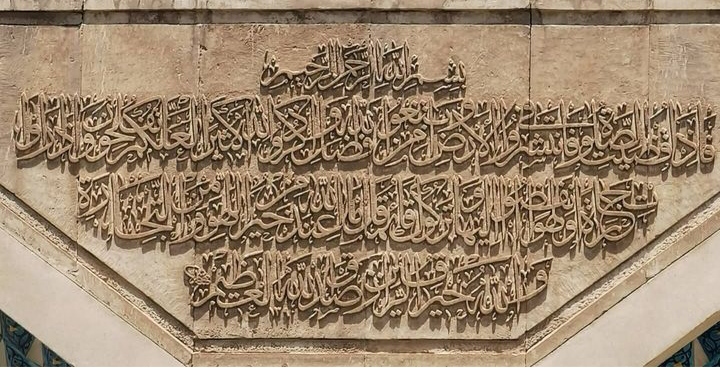 بسم الله الرحمن الرحيم
فإذا قضيت الصلوة فانتشروا في الأرض وابتغوا من فضل الله واذكروا الله كثيرا لعلكم تفلحون وإذا رأوا
تجارة أو لهوا انفضوا إليها وتركوك قائما قل ما عند الله خير من اللهو ومن التجارة
والله خير الرازقين صدق الله العظيم